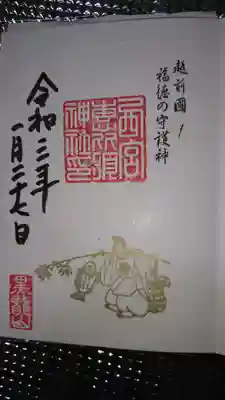 越前國
福徳の守護神
西宮
恵比須
神社印
令和三年
一月二十七日